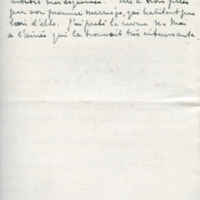 montré mes esquisses. Elle a trois filles
par son premier mariage, qui habitent près
loin d'elle. J'ai prêté la revue de Mai
à l'aînée qui la trouvait très intéressante.